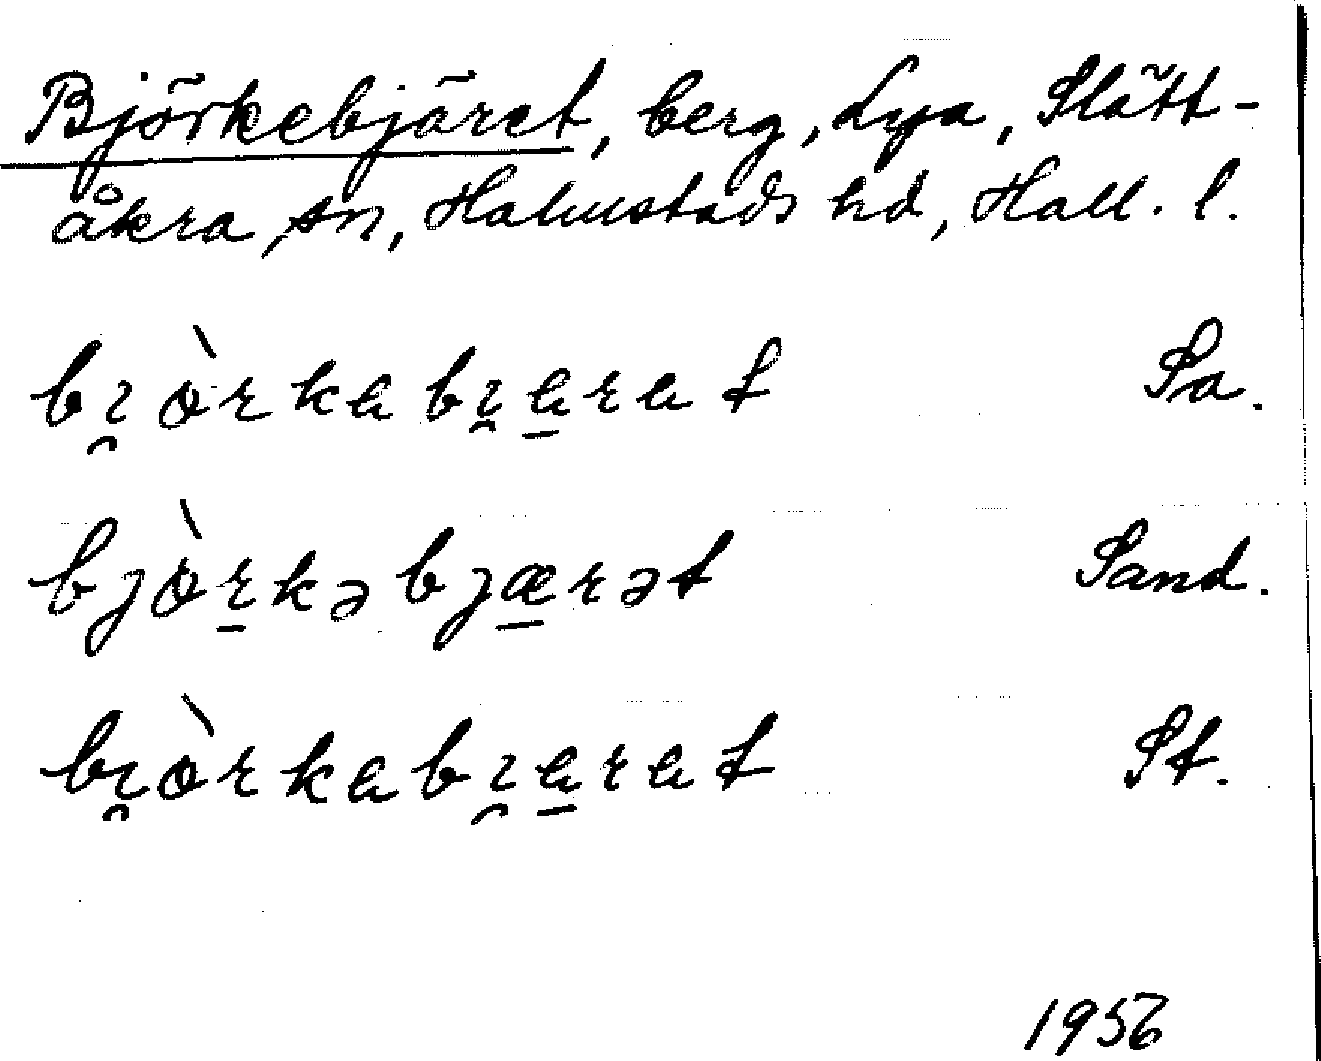 Björkebjäret, berg, Lya, Slätt-
åkra sn, Halmstads hd, Hall. l.
bı̯òrkabı̯a̠rat Sa.
bjòr̠kəbjæ̠rət Sand.
bı̯òrkabı̯a̠rat St.
1956